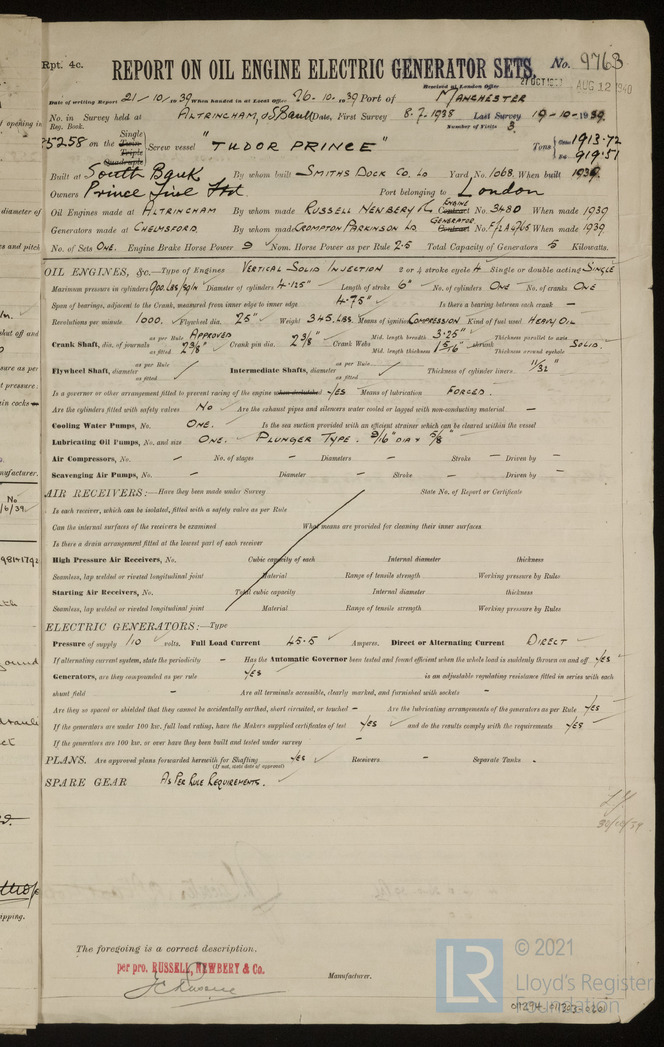 Rpt. 4c.
REPORT ON OIL ENGINE ELECTRIC GENERATOR SETS.
No. 9763
Received at London Office
27 OCT 1939
AUG 12 1940
Date of writing Report 21/10/1939 When handed in at Local Office 26-10-1939 Port of MANCHESTER
No. in Survey held at ALTRINCHAM, & S. Bank Date, First Survey 8.7.1938 Last Survey 19-10-1939
Reg. Book.
Number of Visits 3.
Single
Twin
Triple
Quadruple
35258 on the Screw vessel "TUDOR PRINCE"
Tons Gross 1913.72
Net 919.51
Built at South Bank By whom built SMITHS DOCK CO. LD Yard No. 1068. When built 1939.
Owners Prince Line Ltd. Port belonging to London
Oil Engines made at ALTRINCHAM By whom made RUSSELL NEWBERY & Co ENGINE Contract No. 3480 When made 1939
Generators made at CHELMSFORD. By whom made CROMPTON PARKINSON LD GENERATOR Contract No. When made 1939
No. of Sets ONE. Engine Brake Horse Power 9 Nom. Horse Power as per Rule 2.5 Total Capacity of Generators 5 Kilowatts.
OIL ENGINES, &c.—Type of Engines VERTICAL SOLID INJECTION 2 or 4 stroke cycle 4 Single or double acting SINGLE
Maximum pressure in cylinders 900 LBS/SQ IN Diameter of cylinders 4.125" Length of stroke 6" No. of cylinders ONE No. of cranks ONE
Span of bearings, adjacent to the Crank, measured from inner edge to inner edge 4.75" Is there a bearing between each crank —
Revolutions per minute 1000. Flywheel dia. 25" Weight 345 LBS. Means of ignition COMPRESSION Kind of fuel used HEAVY OIL
Crank Shaft, dia. of journals as per Rule APPROVED as fitted 2 3/8" Crank pin dia. 2 3/8" Crank Webs Mid. length breadth 3.25" Mid. length thickness 1 5/16" shrunk Thickness parallel to axis Thickness around eyehole SOLID.
Flywheel Shaft, diameter as per Rule as fitted Intermediate Shafts, diameter as per Rule as fitted Thickness of cylinder liners 11/32"
Is a governor or other arrangement fitted to prevent racing of the engine when declutched YES Means of lubrication FORCED.
Are the cylinders fitted with safety valves NO Are the exhaust pipes and silencers water cooled or lagged with non-conducting material —
Cooling Water Pumps, No. ONE. Is the sea suction provided with an efficient strainer which can be cleared within the vessel
Lubricating Oil Pumps, No. and size ONE. PLUNGER TYPE. 9/16" DIA x 3/8"
Air Compressors, No. — No. of stages — Diameters — Stroke — Driven by —
Scavenging Air Pumps, No. — Diameter — Stroke — Driven by —
AIR RECEIVERS:—Have they been made under Survey State No. of Report or Certificate
Is each receiver, which can be isolated, fitted with a safety valve as per Rule
Can the internal surfaces of the receivers be examined What means are provided for cleaning their inner surfaces
Is there a drain arrangement fitted at the lowest part of each receiver
High Pressure Air Receivers, No. Cubic capacity of each Internal diameter thickness
Seamless, lap welded or riveted longitudinal joint Material Range of tensile strength Working pressure by Rules
Starting Air Receivers, No. Total cubic capacity Internal diameter thickness
Seamless, lap welded or riveted longitudinal joint Material Range of tensile strength Working pressure by Rules
ELECTRIC GENERATORS:—Type
Pressure of supply 110 volts. Full Load Current 45.5 Amperes. Direct or Alternating Current DIRECT
If alternating current system, state the periodicity — Has the Automatic Governor been tested and found efficient when the whole load is suddenly thrown on and off YES
Generators, are they compounded as per rule YES is an adjustable regulating resistance fitted in series with each
shunt field — Are all terminals accessible, clearly marked, and furnished with sockets —
Are they so spaced or shielded that they cannot be accidentally earthed, short circuited, or touched — Are the lubricating arrangements of the generators as per Rule YES
If the generators are under 100 kw. full load rating, have the Makers supplied certificates of test YES and do the results comply with the requirements YES
If the generators are 100 kw. or over have they been built and tested under survey —
PLANS. Are approved plans forwarded herewith for Shafting YES Receivers — Separate Tanks .
(If not, state date of approval)
SPARE GEAR AS PER RULE REQUIREMENTS.
30/10/39
The foregoing is a correct description.
per pro. RUSSELL, NEWBERY & Co.
Manufacturer.
LR
© 2021
Lloyd's Register
Foundation
011294-011303-0201